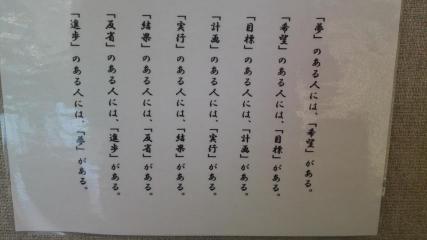 「夢」のある人には、「希望」がある。
「希望」のある人には、「目標」がある。
「目標」のある人には、「計画」がある。
「計画」のある人には、「実行」がある。
「実行」のある人には、「結果」がある。
「結果」のある人には、「反省」がある。
「反省」のある人には、「進歩」がある。
「進歩」のある人には、「夢」がある。